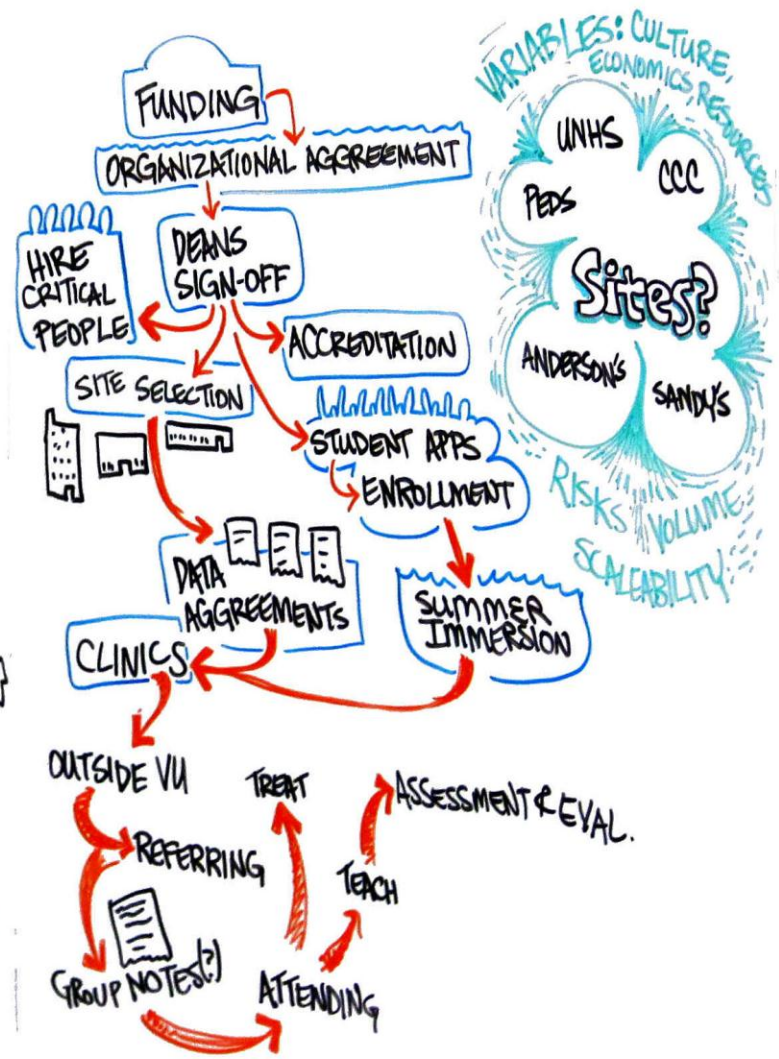 FUNDING
ORGANIZATIONAL AGGREEMENT
DEANS
SIGN-OFF
HIRE
CRITICAL
PEOPLE
ACCREDITATION
SITE SELECTION
STUDENT APPS
ENROLLMENT
DATA
AGGREEMENTS
SUMMER
IMMERSION
CLINICS
OUTSIDE VU
REFERRING
GROUP NOTES(?)
ATTENDING
TREAT
TEACH
ASSESSMENT & EVAL.
VARIABLES: CULTURE,
ECONOMICS, RESOURCES
UNHS
CCC
PEDS
Sites?
ANDERSON'S
SANDY'S
RISKS VOLUME
SCALEABILITY